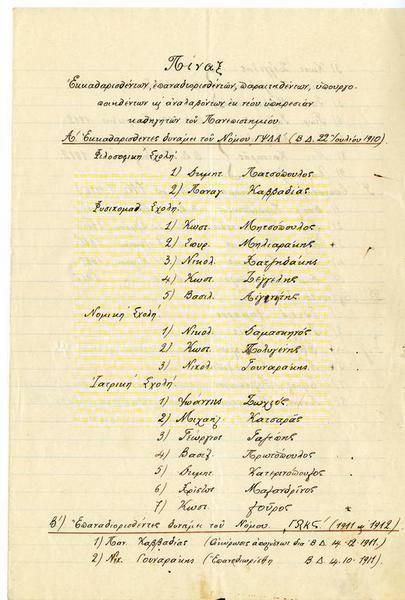 Πίναξ
Ἐκκαθαρισθέντων, ἐπαναδιορισθέντων, παραιτηθέντων, ὑπουργο-
ποιηθέντων κ ἀναλαβόντων ἐκ νέου ὑπηρεσίαν
καθηγητῶν τοῦ Πανεπιστημίου.
Α') Ἐκκαθαρισθέντες δυνάμει τοῦ Νόμου ΓΨΛΑ' (Β.Δ. 22 Ἰουλίου 1910)
Φιλοσοφικὴ Σχολή:
1) Δημητ. Πατσόπουλος
2) Παναγ. Καββαδίας
Φυσικομαθ. Σχολή:
1) Κωστ. Μητσόπουλος
2) Σπυρ. Μηλιαράκης +
3) Νικολ. Χατζηδάκης
4) Κωστ. Ζέγγελης
5) Βασιλ. Αἰγινήτης +
Νομικὴ Σχολή
1) Νικολ. Δαμασκηνός
2) Κωστ. Πολυγένης +
3) Νικολ. Γουναράκης +
Ἰατρικὴ Σχολή
1) Ζωχιός
2) Μιχαὴλ Κατσαρᾶς
3) Γεώργιος
4) Βασίλ. Πρωτόπουλος
5) Δημητ.
6) Χρῖστος Μαλανδρῖνος
7) Κωστ.
Β') Ἐπαναδιορισθέντες δυνάμει τοῦ Νόμου (1911 κ 1912)
1) Παν. Καββαδίας ( διὰ Β.Δ. 14.12.1911.)
2) Νικ. Γουναράκης (Ἐπανεδιωρίσθη Β.Δ. 4.10.1911)